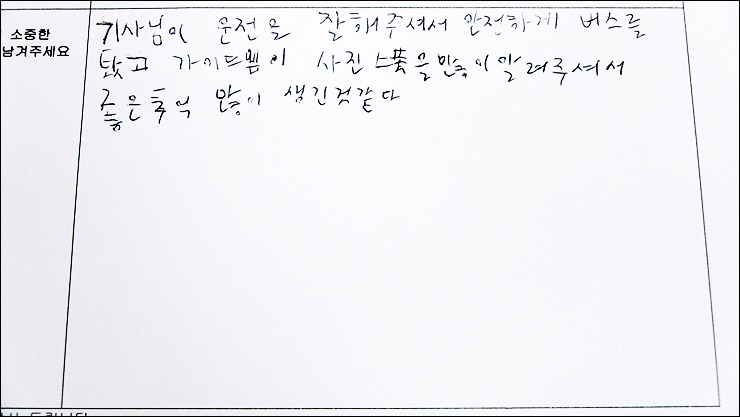 소중한
남겨주세요
기사님이 운전을 잘해주셔서 안전하게 버스를
탔고 가이드쌤이 사진스폿을 많이 알려주셔서
좋은추억 많이 생긴것같다